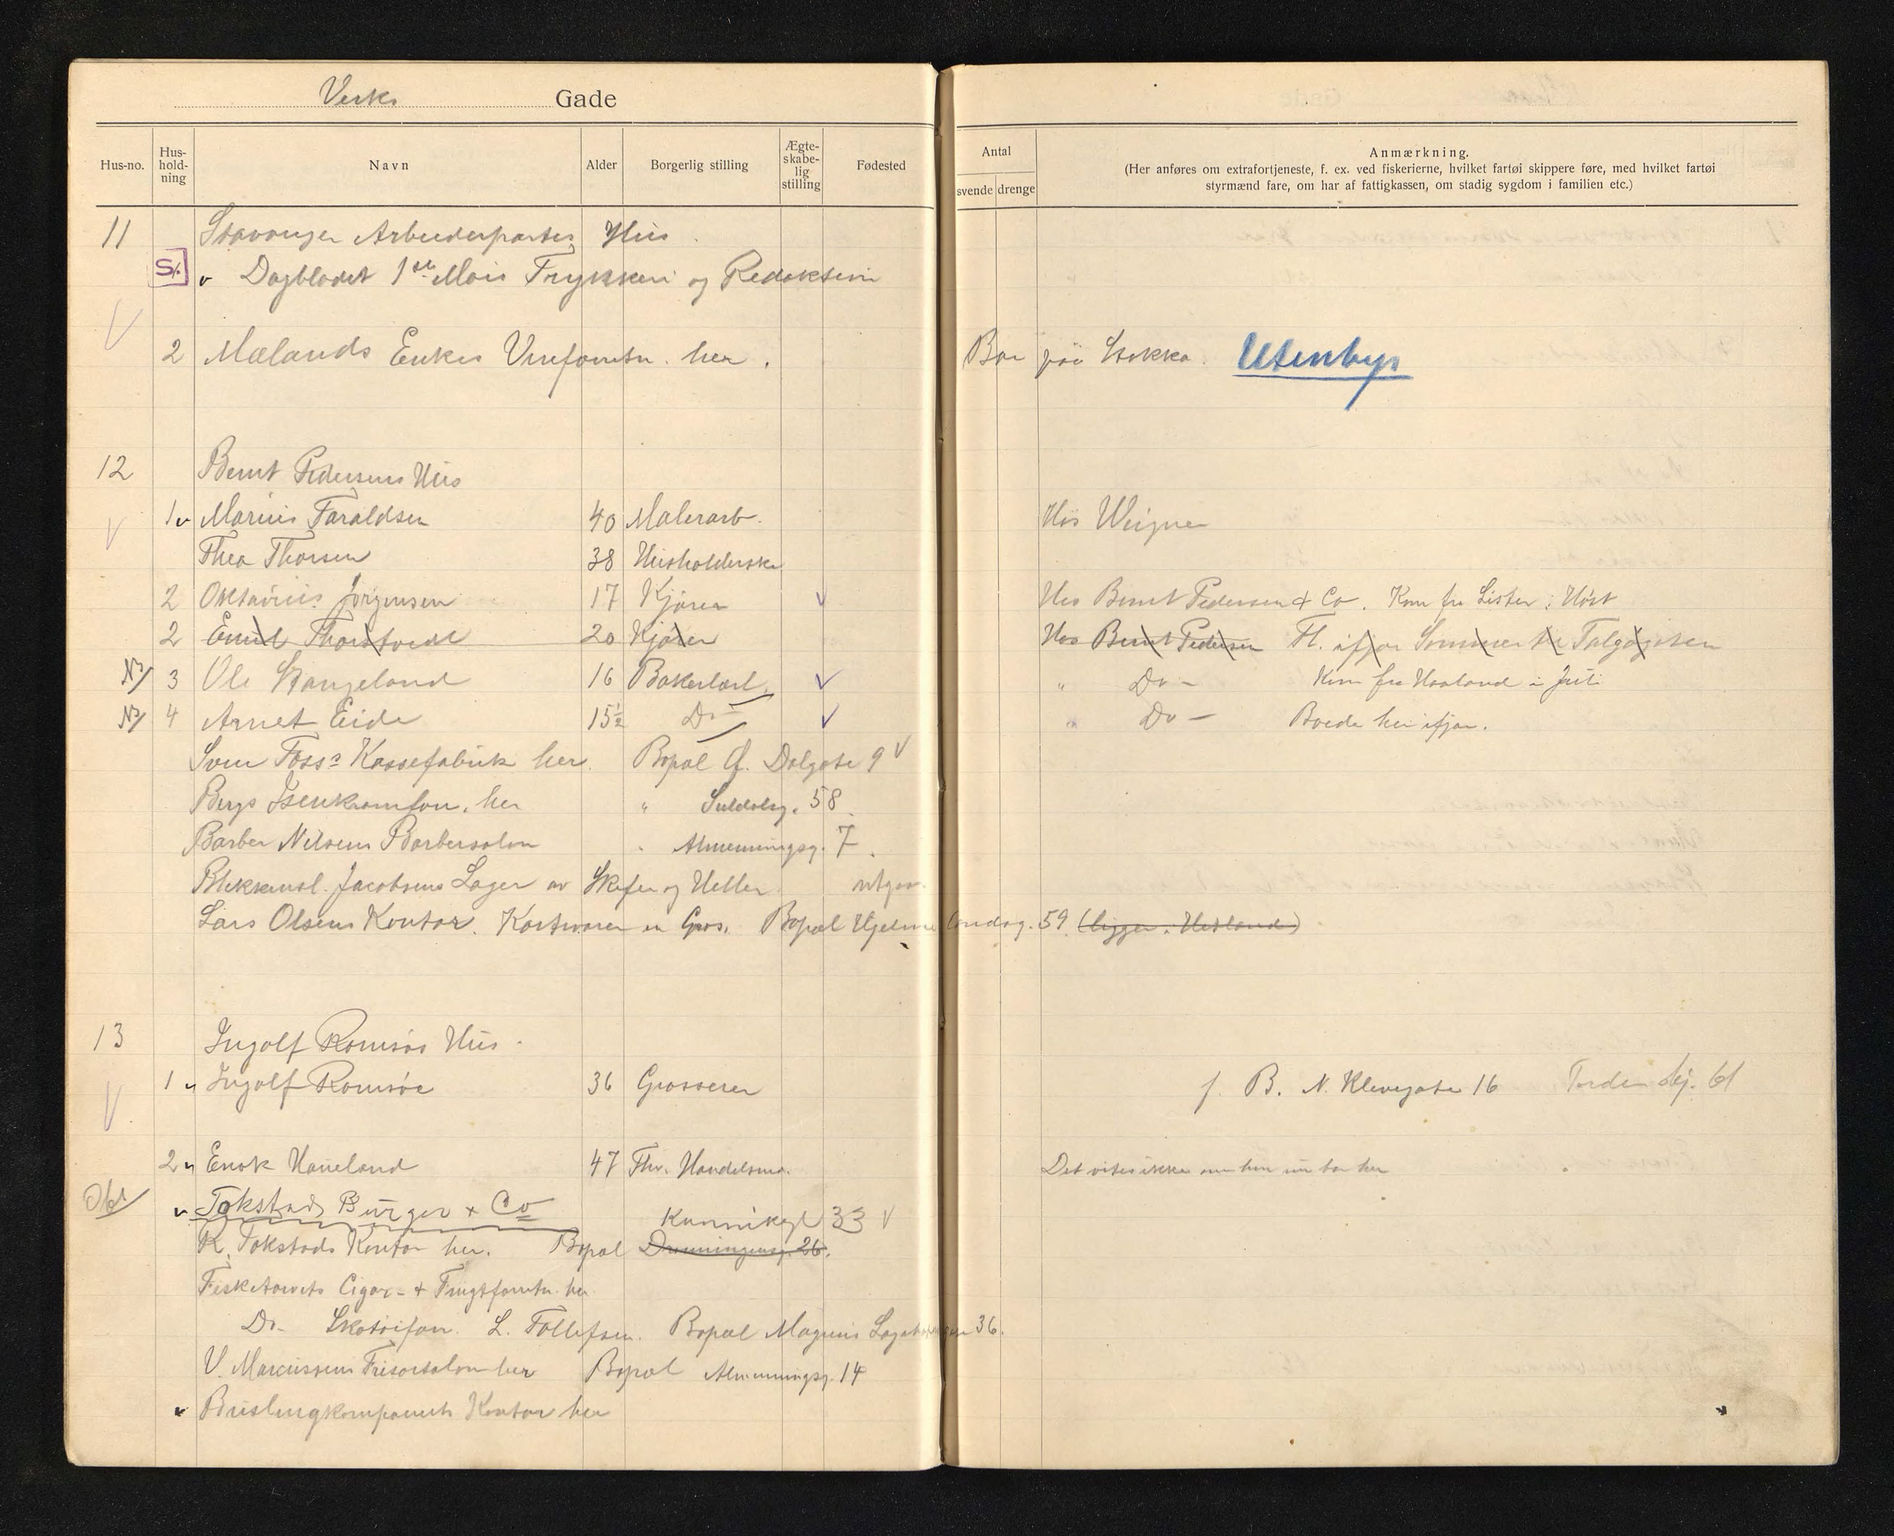 Verks Gade
Hus-no. Hus-hold-ning Navn Alder Borgerlig stilling Ægte-skabe-lig stilling Fødested Antal svende drenge Anmærkning.
(Her anføres om extrafortjeneste, f. ex. ved fiskerierne, hvilket fartøi skippere føre, med hvilket fartøi
styrmænd fare, om har af fattigkassen, om stadig sygdom i familien etc.)
11 Stavanger Arbeiderpartis Hus
St. v Dagbladet 1ste Mais Trykkeri og Redaktion
2 Mælands Enkes Vinforretn. her. Bor paa Stokka. Utenbys
12 Bernt Pedersens Hus
1 v Marius Taraldsen 40 Malerarb. Hos Weigner
Thea Thorsen 38 Husholderske
2 Oktavius Jörgensen 17 Kjører Hos Bernt Pedersen & Co. Kom fra Lister i Høst
2 Emil Thorstvedt 20 Kjører Hos Bernt Pedersen Fl. ifjor Sommer til Talgøgaten
Ny 3 Ole Stangeland 16 Bakerlærl. " Do - Kom fra Haaland i Juli
Ny 4 Arnet Eide 15½ Do - " Do - Boede her ifjor.
Sven Foss's Kassefabrik her. Bopæl Dalgate 9
Bergs Isenkramforr. her " Suldalsg. 58.
Barber Nilsens Barbersalon " Almenningsg. 7.
Blikkensl. Jacobsens Lager av Skifer og Heller utgaar.
Lars Olsens Kontor. Kortvarer en Gros. Bopæl Hjelmelandsg. 59 (ligger i Hetland)
13 Ingolf Romsøs Hus
1 v Ingolf Romsøe 36 Grosserer f. B. N. Klevegate 16 Tordenskj. 61
2 v Enok Haueland 47 Fhv. Handelsma. Det vites ikke om han nu bor her
Obs v Tokstad, Burger & Co
Kannikgt 33
K. Tokstads Kontor her. Bopæl Dronningensg. 26.
Fisketorvets Cigar- & Frugtforretn. her
Do - Skotøiforr. L. Tollefsen. Bopæl Magnus Lagabøtersgt 36.
V. Marcussens Frisørsalon her Bopæl Almenningsg. 14
v Brislingkompaniets Kontor her